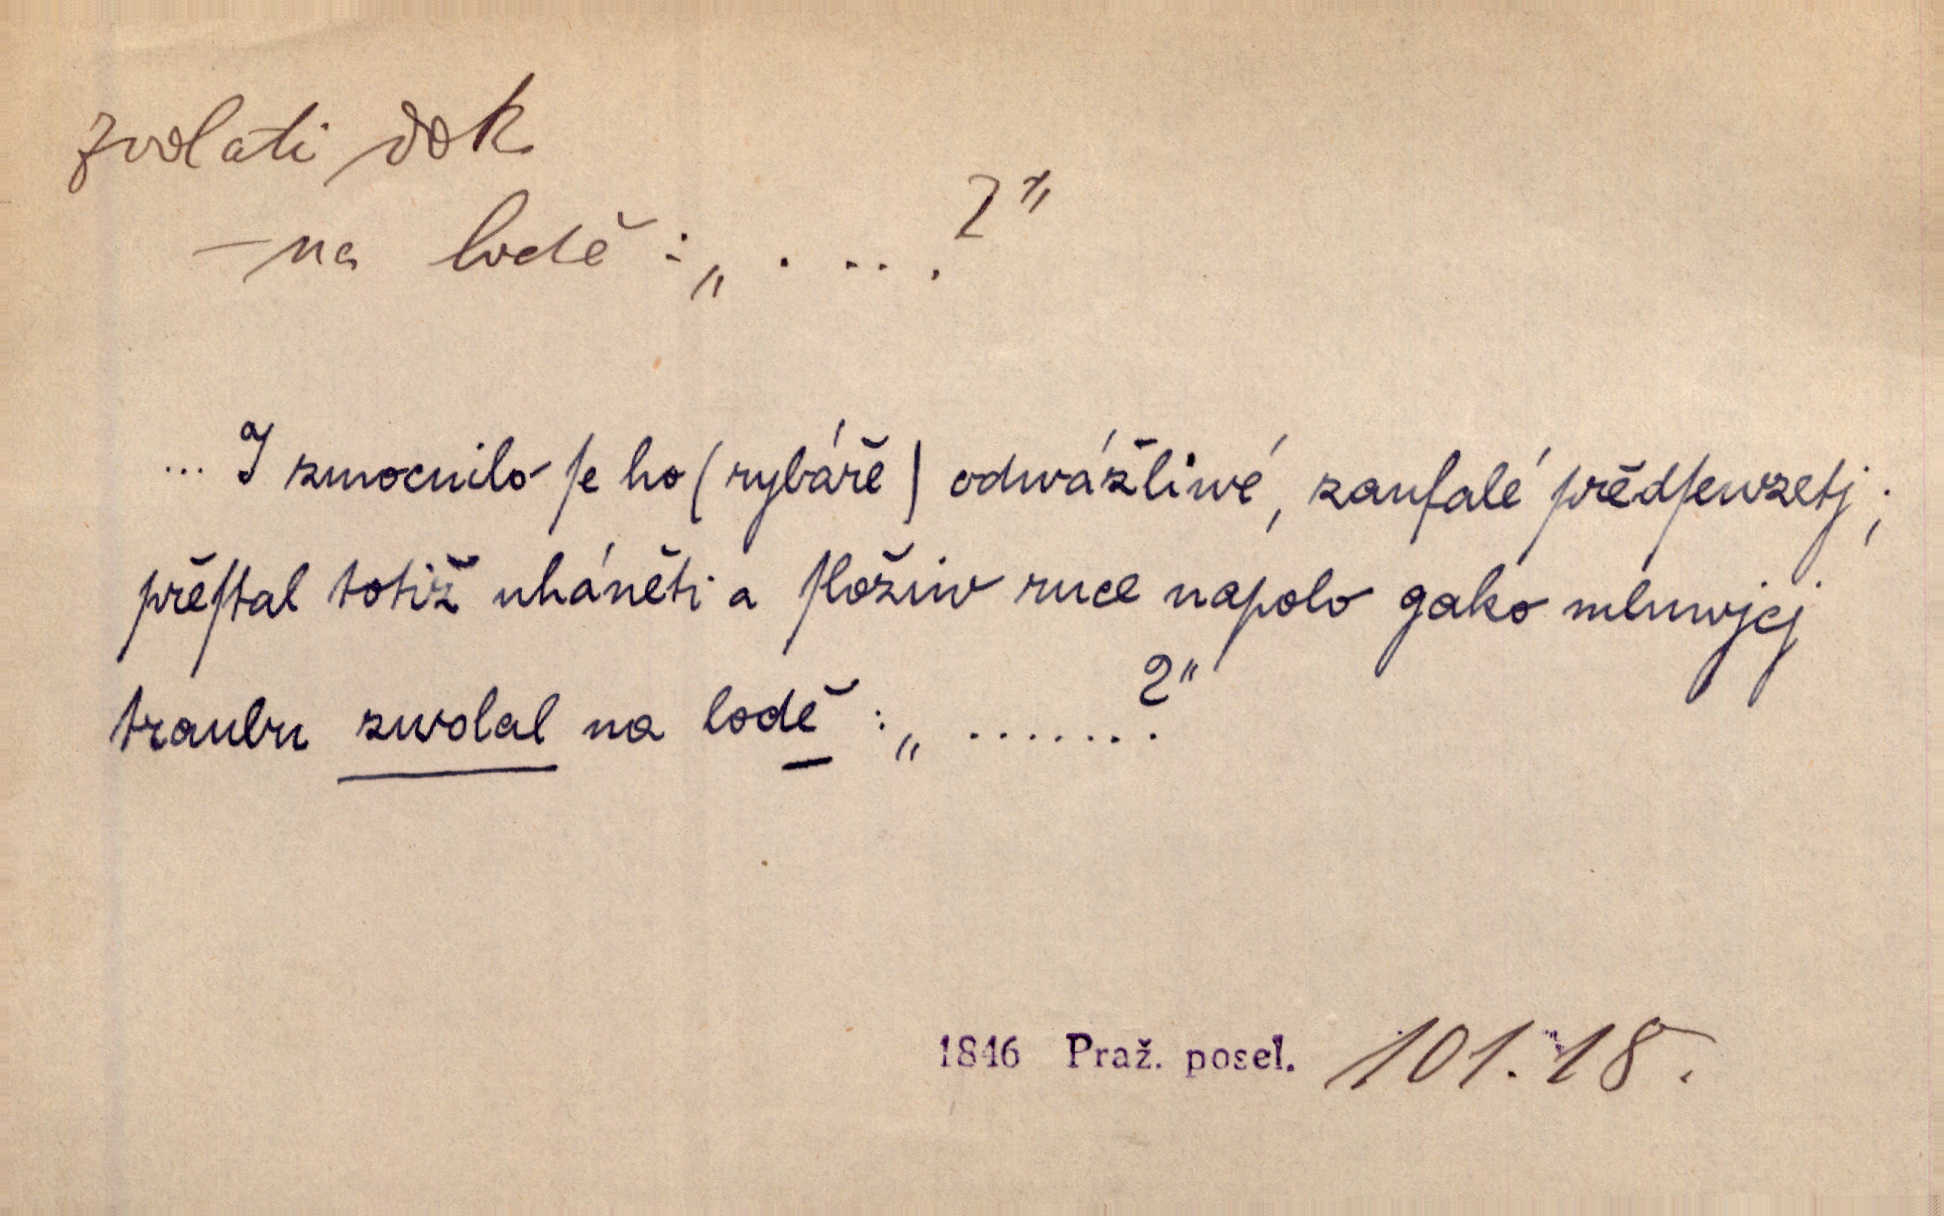 zvolati dok
– na lodě : „ . . . . ?"
... I zmocnilo ſe ho (rybáře) odwážliwé, zaufalé předſewzetj ;
přeſtal totiž uháněti a ſložiw ruce napolo gako mluwjcj
traubu zwolal na lodě : „ . . . . . . . ?"
1846 Praž. posel. 101. 18.